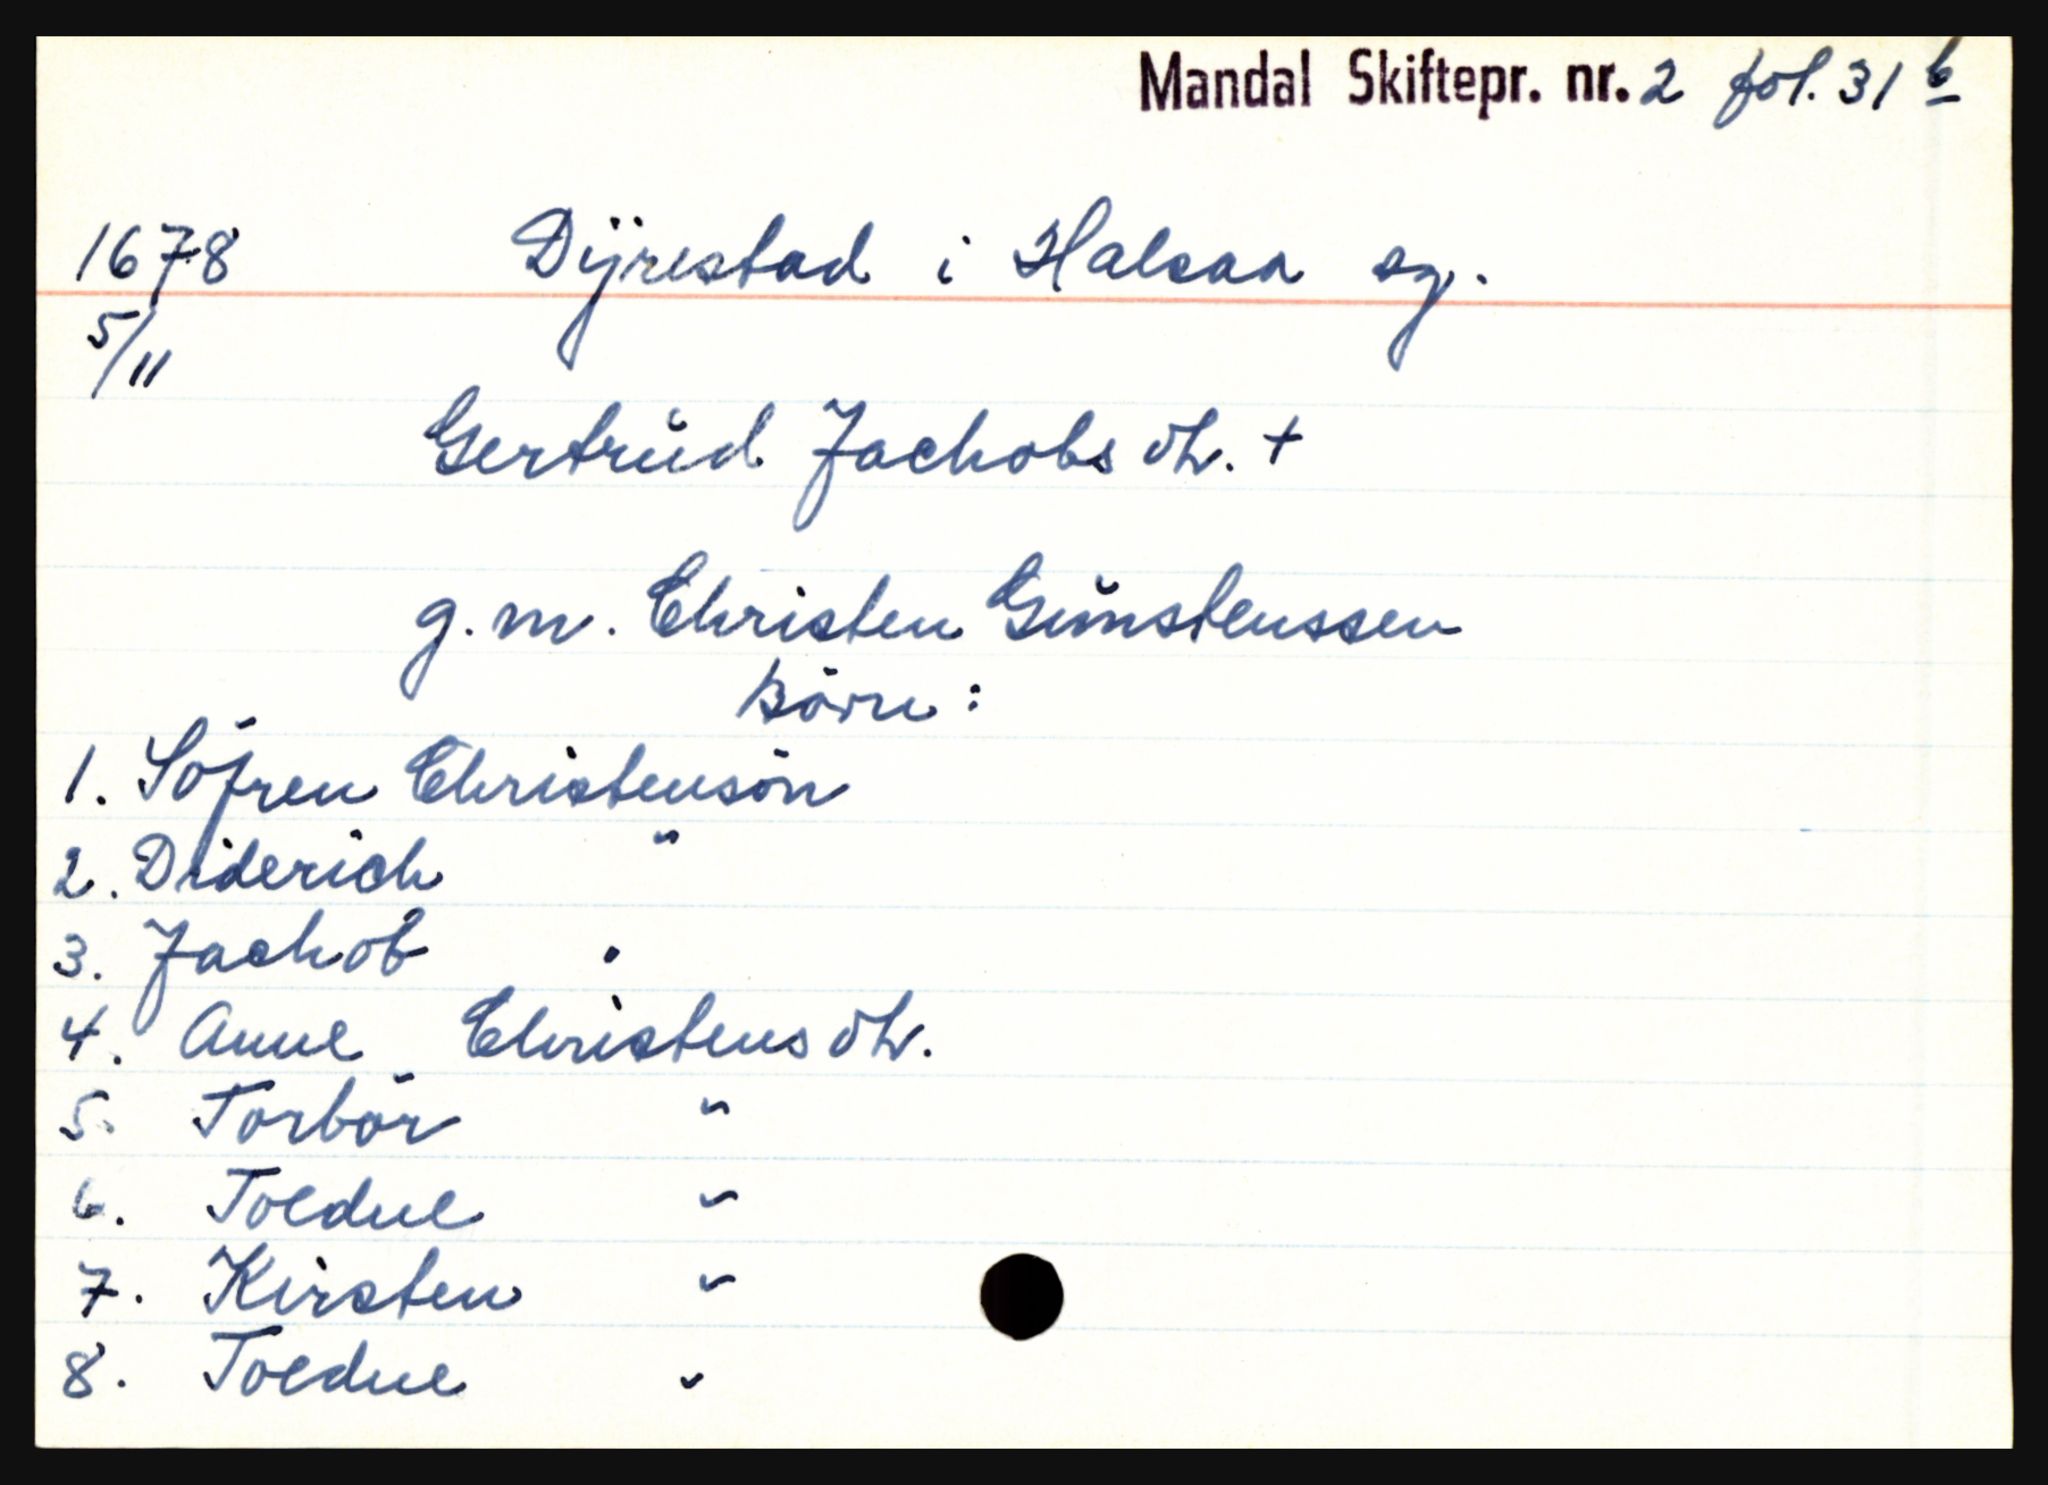 Mandal Skiftepr. nr. 2 fol. 31 b
1678 Dÿrestad i Halsaa sg.
5/11
Gertrŭd Jachobs dtr. +
g. m. Christen Gŭnstenssen
Börn:
1. Söfren Christensön
2. Diderich "
3. Jachob "
4. Anne Christens dtr.
5. Torbör "
6. Toedne "
7. Kirsten "
8. Toedne "